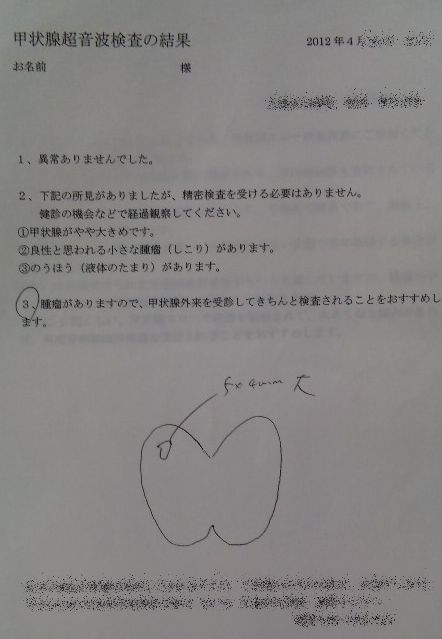 甲状腺超音波検査の結果
2012年4月
お名前 様
1、異常ありませんでした。
2、下記の所見がありましたが、精密検査を受ける必要はありません。
健診の機会などで経過観察してください。
①甲状腺がやや大きめです。
②良性と思われる小さな腫瘤（しこり）があります。
③のうほう（液体のたまり）があります。
3、腫瘤がありますので、甲状腺外来を受診してきちんと検査されることをおすすめし
ます。
5×4mm大